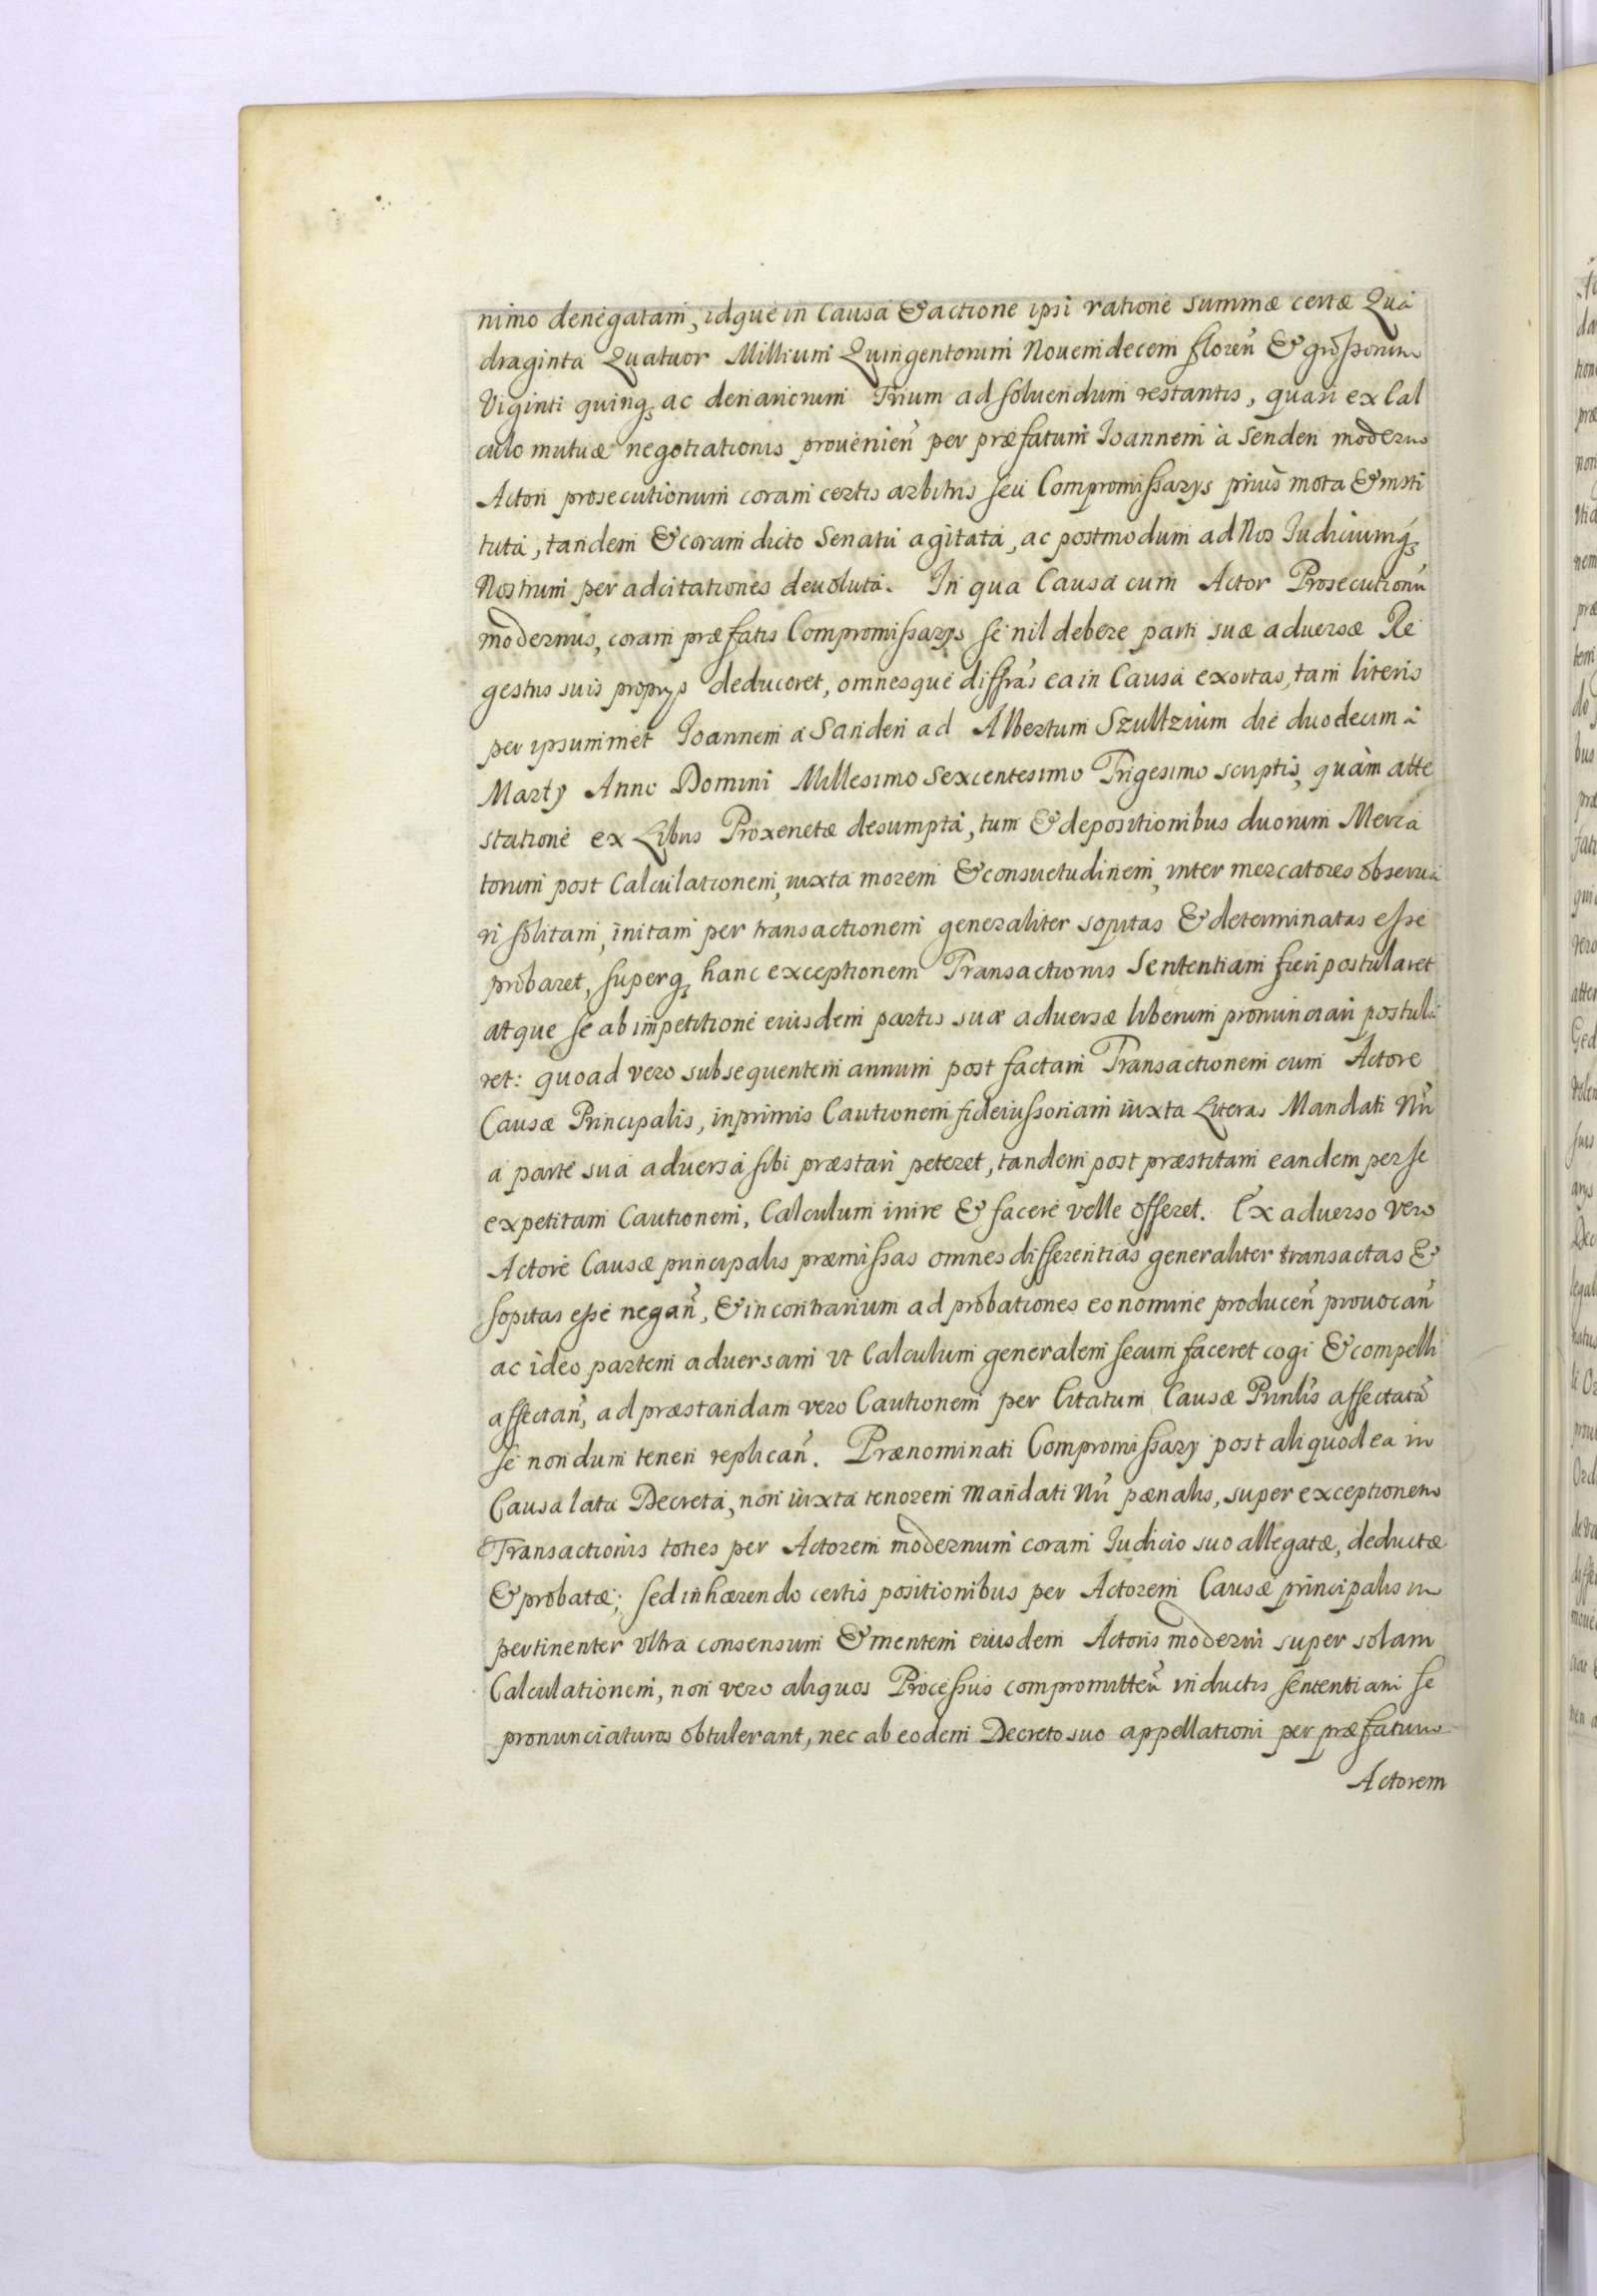 nimo denegatam, idque in Causa & actione ipsi ratione summæ certæ Qua
draginta Quatuor Millium Quingentorum Novemdecem floreñ & grossorum
Viginti quinq₃ ac denariorum Trium ad solvendum restantis, quasi ex Cal
culo mutuæ negotiationis provenieñ per præfatum Joannem à Senden moderno
Actori prosecutionum coram certis arbitris seu Compromissarÿs prius mota & insti
tuta, tandem & coram dicto Senatu agitata, ac postmodum ad Nos Judiciumq₃
Nostrum per adcitationes devoluta. In qua Causa cum Actor Prosecutionũ
modernus, coram præfatis Compromissarÿs se nil debere parti suæ adversæ Re
gestris suis proprÿs deduceret, omnesque diffr̃as ea in Causa exortas, tam literis
per ipsummet Joannem à Sanden ad Albertum Szultzium die duodecima
Martÿ Anno Domini Millesimo Sexcentesimo Trigesimo scriptis, quàm atte
statione ex Libris Proxenetæ desumpta, tum & depositionibus duorum Merca
torum post Calculationem, iuxta morem & consuetudinem, inter mercatores observa
ri solitam, initam per transactionem generaliter sopitas & determinatas esse
probaret, superq₃ hanc exceptionem Transactionis Sententiam fieri postularet
atque se ab impetitione eiusdem partis suæ adversæ liberum pronunciari postula
ret: quoad vero subsequentem annum post factam Transactionem cum Actore
Causæ Principalis, inprimis Cautionem fideiussoriam iuxta Literas Mandati Nr̃i
a parte sua adversa sibi præstari peteret, tandem post præstitam eandem per se
expetitam Cautionem, Calculum inire & facere velle offeret. Ex adverso vero
Actore Causæ principalis præmissas omnes differentias generaliter transactas &
sopitas esse negañ, & in contrarium ad probationes eo nomine produceñ provocañ
ac ideo partem adversam ut Calculum generalem secum faceret cogi & compelli
affectañ, ad præstandam vero Cautionem per Citatum Causæ Prinlis affectatã
se nondum teneri replicañ. Prænominati Compromissarÿ post aliquod ea in
Causa lata Decreta, non iuxta tenorem Mandati Nr̃i pænalis, super exceptionem
Transactionis toties per Actorem modernum coram Judicio suo allegatæ, deductæ
& probatæ; sed inhærendo certis positionibus per Actorem Causæ principalis im
pertinenter ultra consensum & mentem eiusdem Actoris moderni super solam
Calculationem, non vero aliquos Processus compromitteñ inductis sententiam se
pronunciaturos obtulerant, nec ab eodem Decreto suo appellationi per præfatum
Actorem